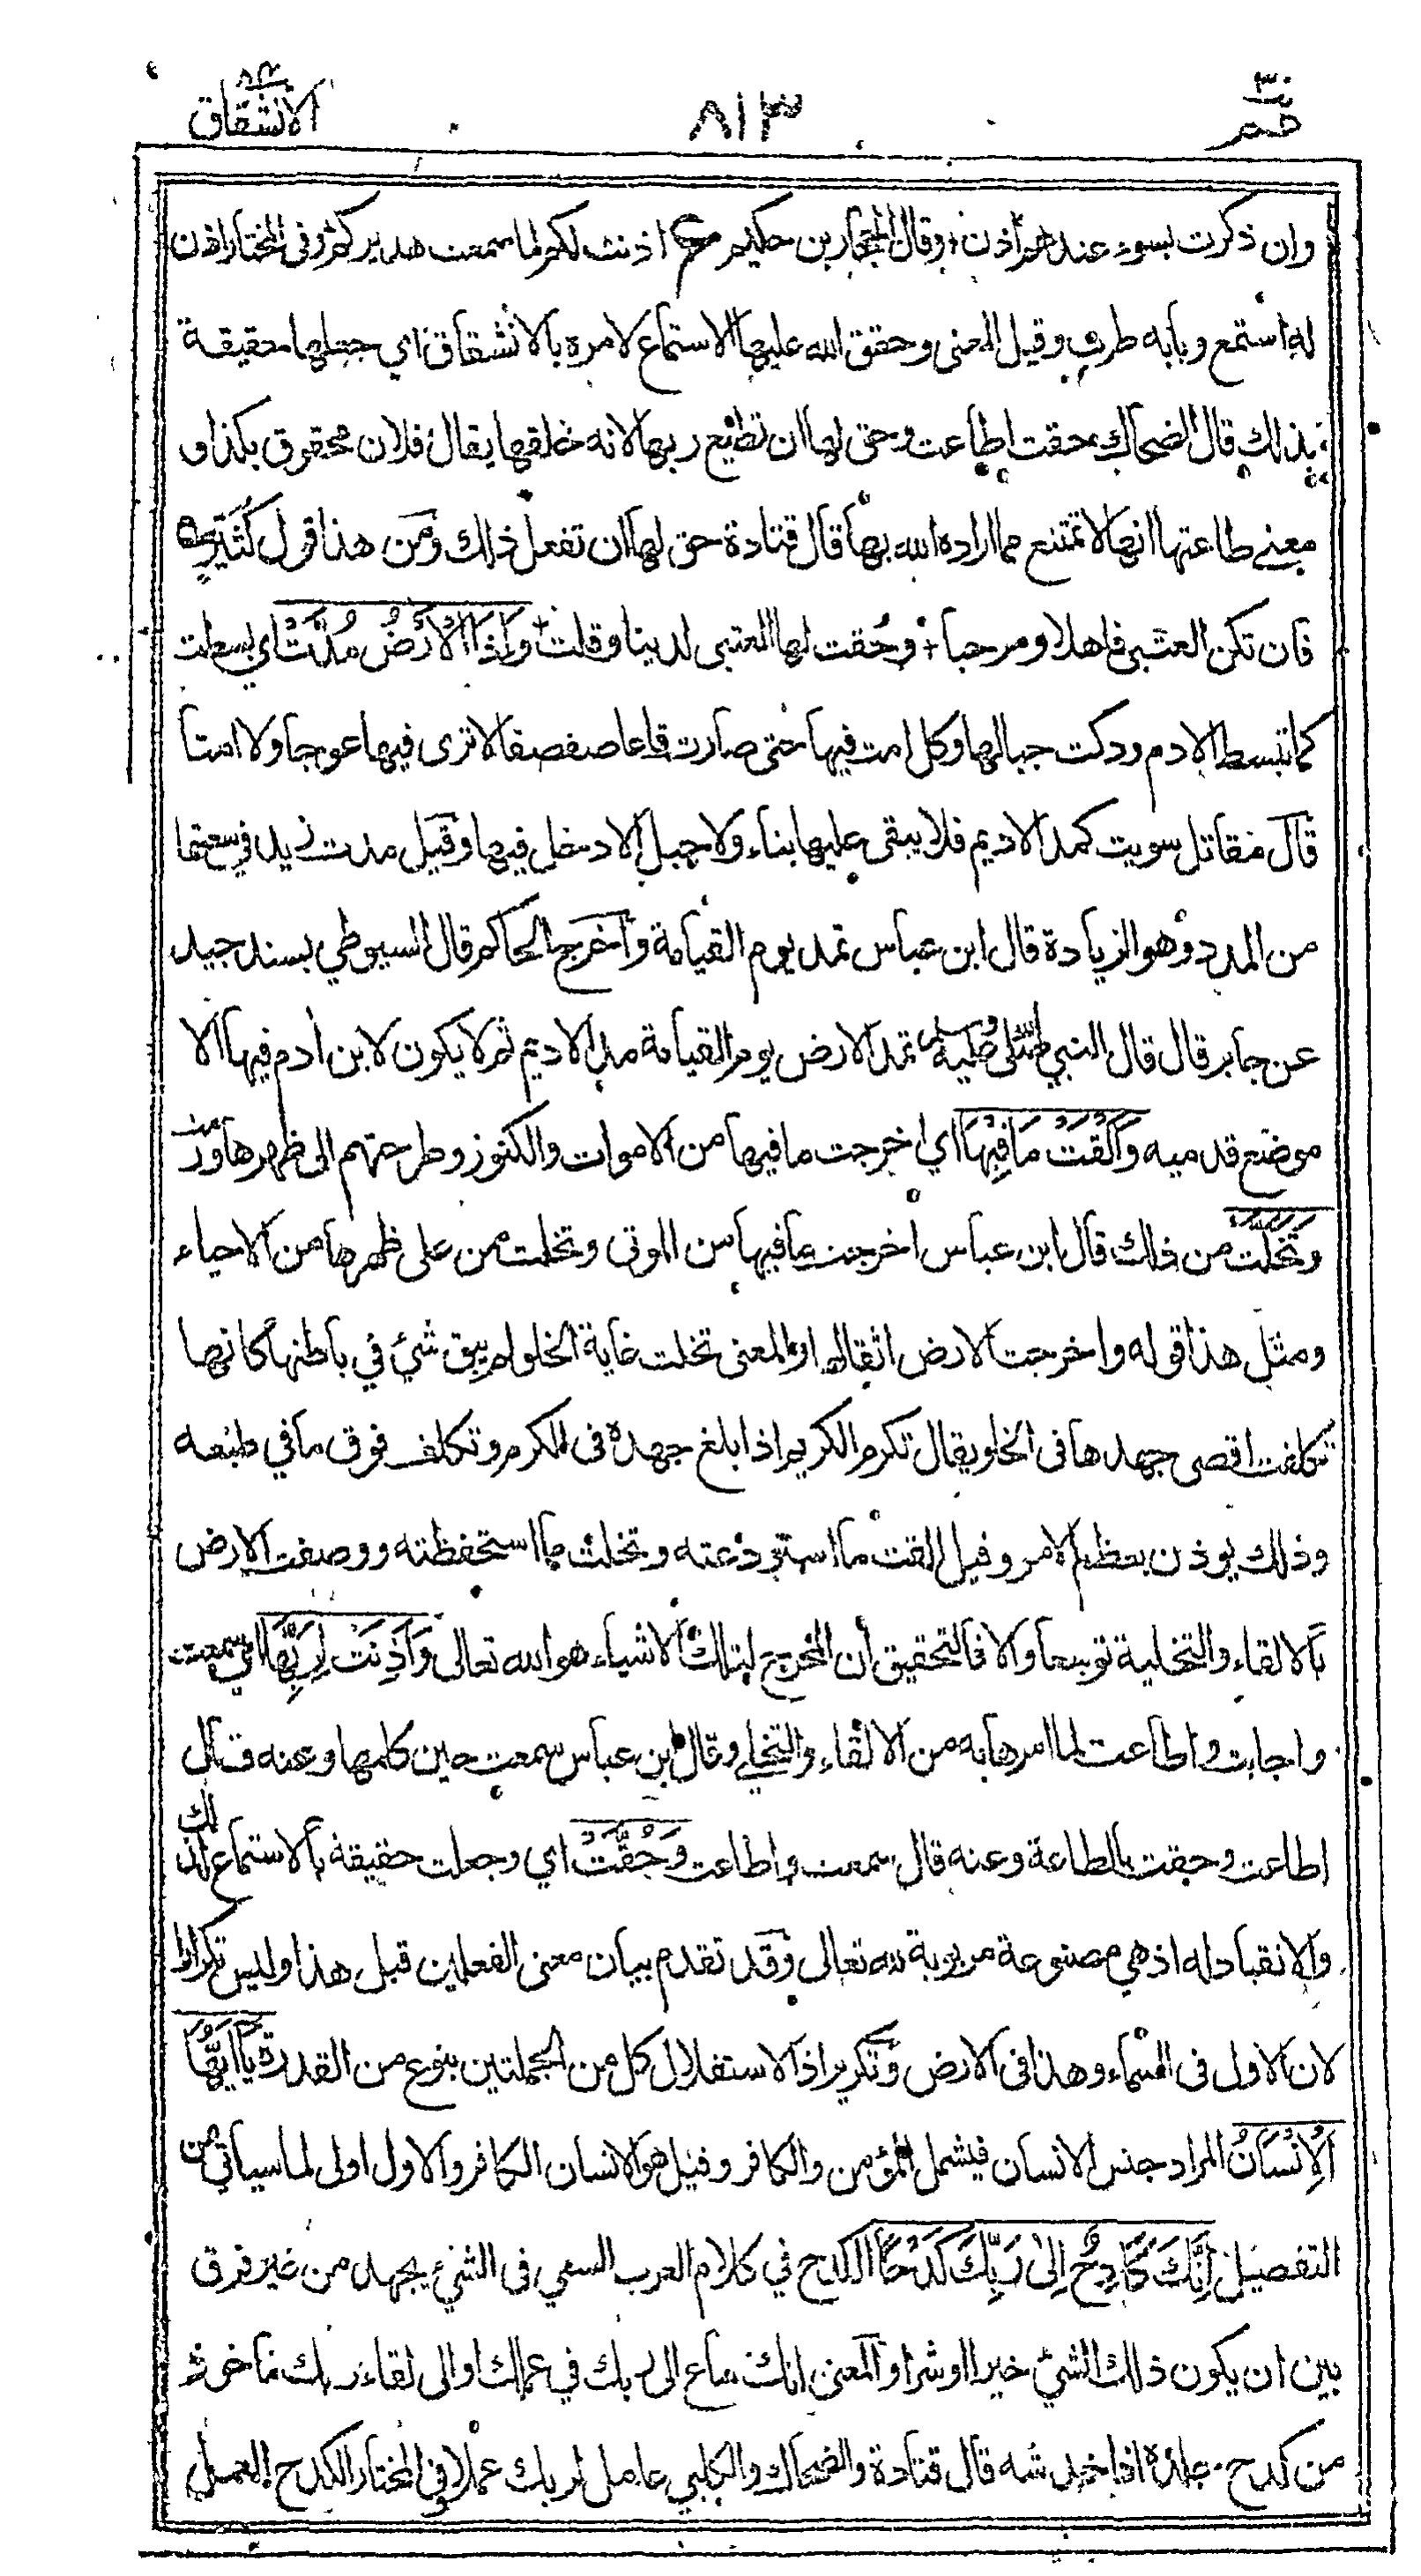 عم ٣٠
٨١٣
الانشقاق ٨٤
وان ذكرت بسوء عندهم أذنوا وقال الجحاف بن حكيم ع اذنت لكم لما سمعت هديركم وفى المختار اذن
له استمع وبابه طرب وقيل المعنى وحقق الله عليها الاستماع لامره بالانشقاق اي جعلها حقيقة
بذلك قال الضحاك حقت اطاعت وحق لها ان تطيع ربها لانه خلقها يقال فلان محقوق بكذا و
معنى طاعتها انها لا تمتنع مما اراده الله بها قال قتادة حق لها ان تفعل ذلك ومن هذا قول كُثَيِّرٍ ه
فان تكن العتبى فاهلا ومرحبا + وحُقت لها العتبى لدينا وقلت + وَإِذَا الْأَرْضُ مُدَّتْ اي بسطت
كما تبسط الادم ودكت جبالها وكل امت فيها حتى صارت قاعا صفصفا لا ترى فيها عوجا ولا امتا
قال مقاتل سويت كمد الاديم فلا يبقى عليها بناء ولا جبل الا دخل فيها وقيل مدت زيد في سعتها
من المدد وهو الزيادة قال ابن عباس تمد يوم القيامة وأخرج الحاكم قال السيوطي بسند جيد
عن جابر قال قال النبي صلى الله عليه وسلم تمد الارض يوم القيامة مد الاديم ثم لا يكون لابن أدم فيها الا
موضع قدميه وَأَلْقَتْ مَا فِيهَا اي اخرجت ما فيها من الاموات والكنوز وطرحتهم الى ظهرها
وَتَخَلَّتْ من ذلك قال ابن عباس اخرجت ما فيها من الموتى وتخلت من على ظهرها من الاحياء
ومثل هذا قوله واخرجت الارض اثقالها والمعنى تخلت غاية الخلو لم يبق شئ في باطنها كانها
تكلفت اقصى جهدها فى الخلو يقال تكرم الكريم اذا بلغ جهده فى الكرم وتكلف فوق ما في طبعه
وذلك يوذن بعظم الامر وقيل القت ما استودعته وتخلت مما استحفظته ووصفت الارض
بالالقاء والتخلية توسعا والا فالتحقيق أن المخرج لتلك الاشياء هو الله تعالى وَأَذِنَتْ لِرَبِّهَا اي سمعت
واجابت واطاعت لما امرها به من الالقاء والتخلي وقال ابن عباس سمعت حين كلمها وعنه قال
اطاعت وحقت بالطاعة وعنه قال سمعت واطاعت وَحُقَّتْ اي وجعلت حقيقة بالاستماع لذلك
والانقياد له اذ هي مصنوعة مربوبة لله تعالى وقد تقدم بيان معنى الفعلين قبل هذا وليس تكرارا
لان الاول فى السماء وهذا فى الارض وتكرير اذا لاستقلال كل من الجملتين بنوع من القدرة يَا أَيُّهَا
الْإِنْسَانُ المراد جنس الانسان فيشمل المؤمن والكافر وقيل هو الانسان الكافر والاول اولى لما سياتي من
التفصيل إِنَّكَ كَادِحٌ إِلَى رَبِّكَ كَدْحًا الكدح في كلام العرب السعي فى الشئ بجهد من غير فرق
بين ان يكون ذلك الشئ خيرا او شرا والمعنى انك ساع الى ربك في عملك او الى لقاء ربك ماخوذ
من كدح جلده اذا خدشه قال قتادة والضحاك والكلبي عامل لربك عملا وفى المختار الكدح العمل